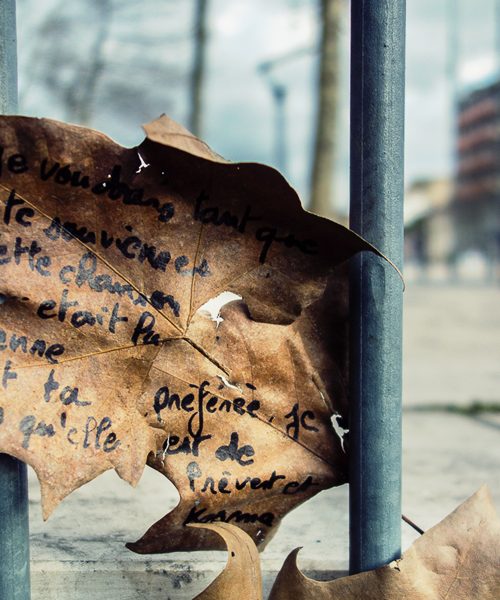 Je voudrais tant que
te souviennes
ette chanson
était la
enne
t ta préférée, je
qu'elle est de
Prévert et
Kosma